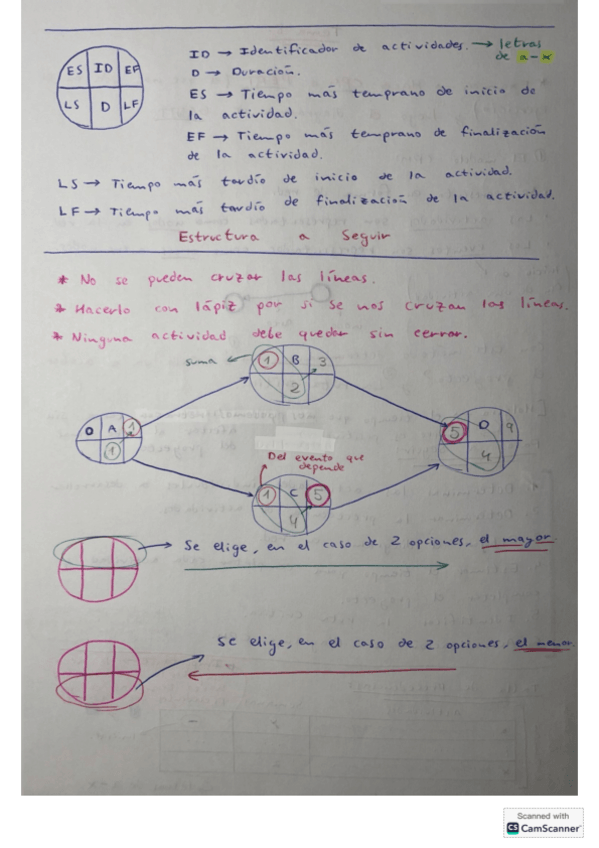 ES ID EF
LS D LF
ID → Identificador de actividades. → letras
de a-x
D → Duración.
ES → Tiempo más temprano de inicio de
la actividad.
EF → Tiempo más temprano de finalización
de la actividad.
LS → Tiempo más tardío de inicio de la actividad.
LF → Tiempo más tardío de finalización de la actividad.
Estructura a Seguir
* No se pueden cruzar las líneas.
* Hacerlo con lápiz por si se nos cruzan las líneas.
* Ninguna actividad debe quedar sin cerrar.
suma
1 B 3
2
0 A 1
1
5 D 9
4
Del evento que
depende
1 C 5
4
→ Se elige, en el caso de 2 opciones, el mayor.
Se elige, en el caso de 2 opciones, el menor.
Scanned with
CS CamScanner